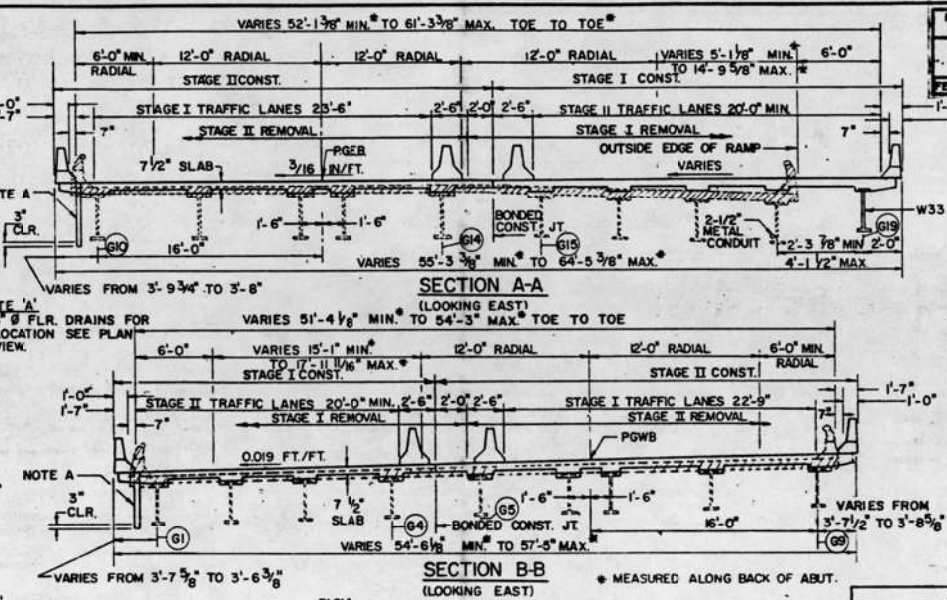 VARIES 52'-1 3/8" MIN.* TO 61'-3 3/8" MAX. TOE TO TOE*
6'-0" MIN. RADIAL
12'-0" RADIAL
12'-0" RADIAL
12'-0" RADIAL
VARIES 5'-1 1/8" MIN.*
TO 14'-9 5/8" MAX.*
6'-0"
STAGE II CONST.
STAGE I CONST.
STAGE I TRAFFIC LANES 23'-6"
2'-6"
2'-0"
2'-6"
STAGE II TRAFFIC LANES 20'-0" MIN.
7"
STAGE II REMOVAL
STAGE I REMOVAL
7"
OUTSIDE EDGE OF RAMP
7 1/2" SLAB
PGEB
3/16 IN/FT.
VARIES
NOTE A
3" CLR.
1'-6"
1'-6"
BONDED CONST. JT.
2-1/2" METAL CONDUIT
W33
G10
G14
G15
G19
16'-0"
2'-3 7/8" MIN
2'-0"
4'-1 1/2" MAX.
VARIES 55'-3 3/8" MIN.* TO 64'-5 3/8" MAX.*
VARIES FROM 3'-9 3/4" TO 3'-8"
SECTION A-A
(LOOKING EAST)
'A'
Ø FLR. DRAINS FOR
LOCATION SEE PLAN
VIEW.
VARIES 51'-4 1/8" MIN.* TO 54'-3" MAX.* TOE TO TOE
6'-0"
VARIES 15'-1" MIN.*
TO 17'-11 11/16" MAX.*
12'-0" RADIAL
12'-0" RADIAL
6'-0" MIN. RADIAL
STAGE I CONST.
STAGE II CONST.
1'-0"
1'-7"
1'-7"
1'-0"
STAGE II TRAFFIC LANES 20'-0" MIN.
2'-6"
2'-0"
2'-6"
STAGE I TRAFFIC LANES 22'-9"
7"
STAGE I REMOVAL
STAGE II REMOVAL
7"
PGWB
0.019 FT./FT.
NOTE A
3" CLR.
7 1/2" SLAB
1'-6"
1'-6"
G1
G4
G5
G9
BONDED CONST. JT.
16'-0"
VARIES FROM
3'-7 1/2" TO 3'-8 5/8"
VARIES 54'-6 1/8" MIN.* TO 57'-5" MAX.*
VARIES FROM 3'-7 5/8" TO 3'-6 3/8"
SECTION B-B
(LOOKING EAST)
* MEASURED ALONG BACK OF ABUT.